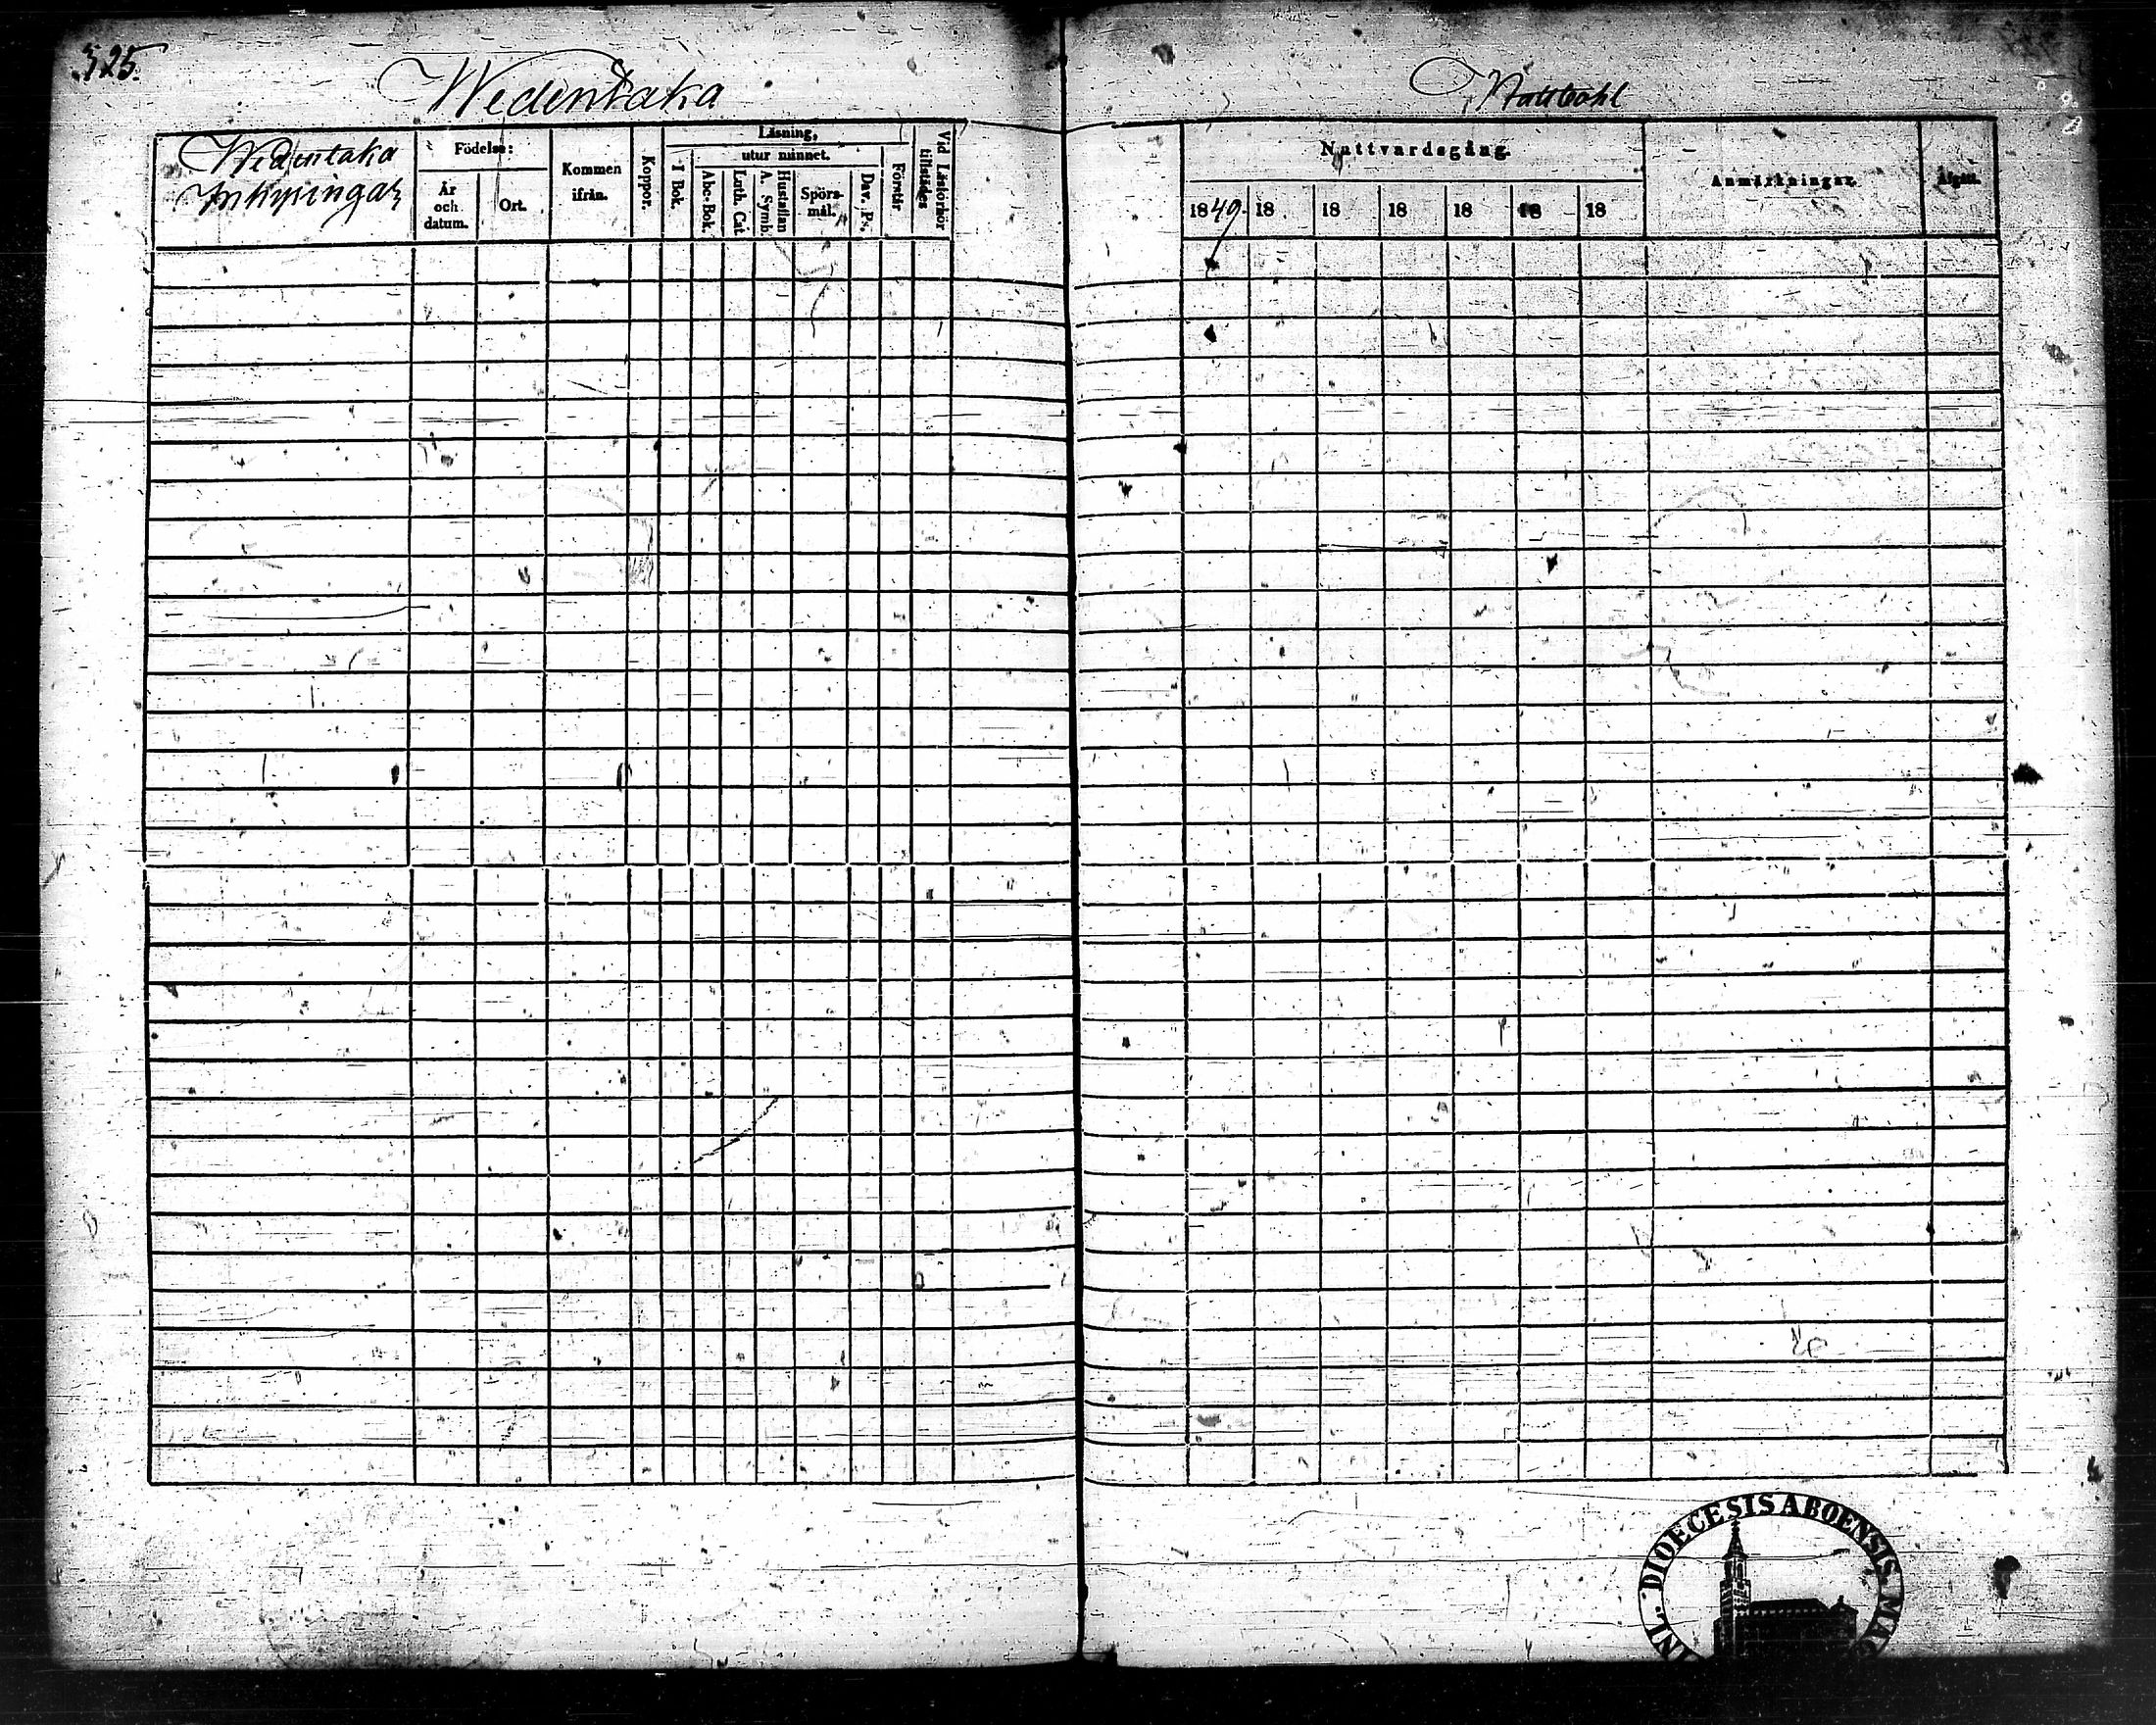 325.
Wedentaka
Wedentaka
Inhysingar
Födelse:
År
och
datum.
Ort.
Kommen
ifrån.
Koppor.
Läsning,
utur minnet.
I Bok.
Abc-Bok.
Luth. Cat.
A. Symb.
Hustaflan
Spörs-
mål.
Dav. P.
Förstår
Vid Läsförhör
tillstädes
Nattvardsgång.
1849. 18 18 18 18 18 18
Anmärkningar.
Afgått.
DIOECESIS ABOENSIS